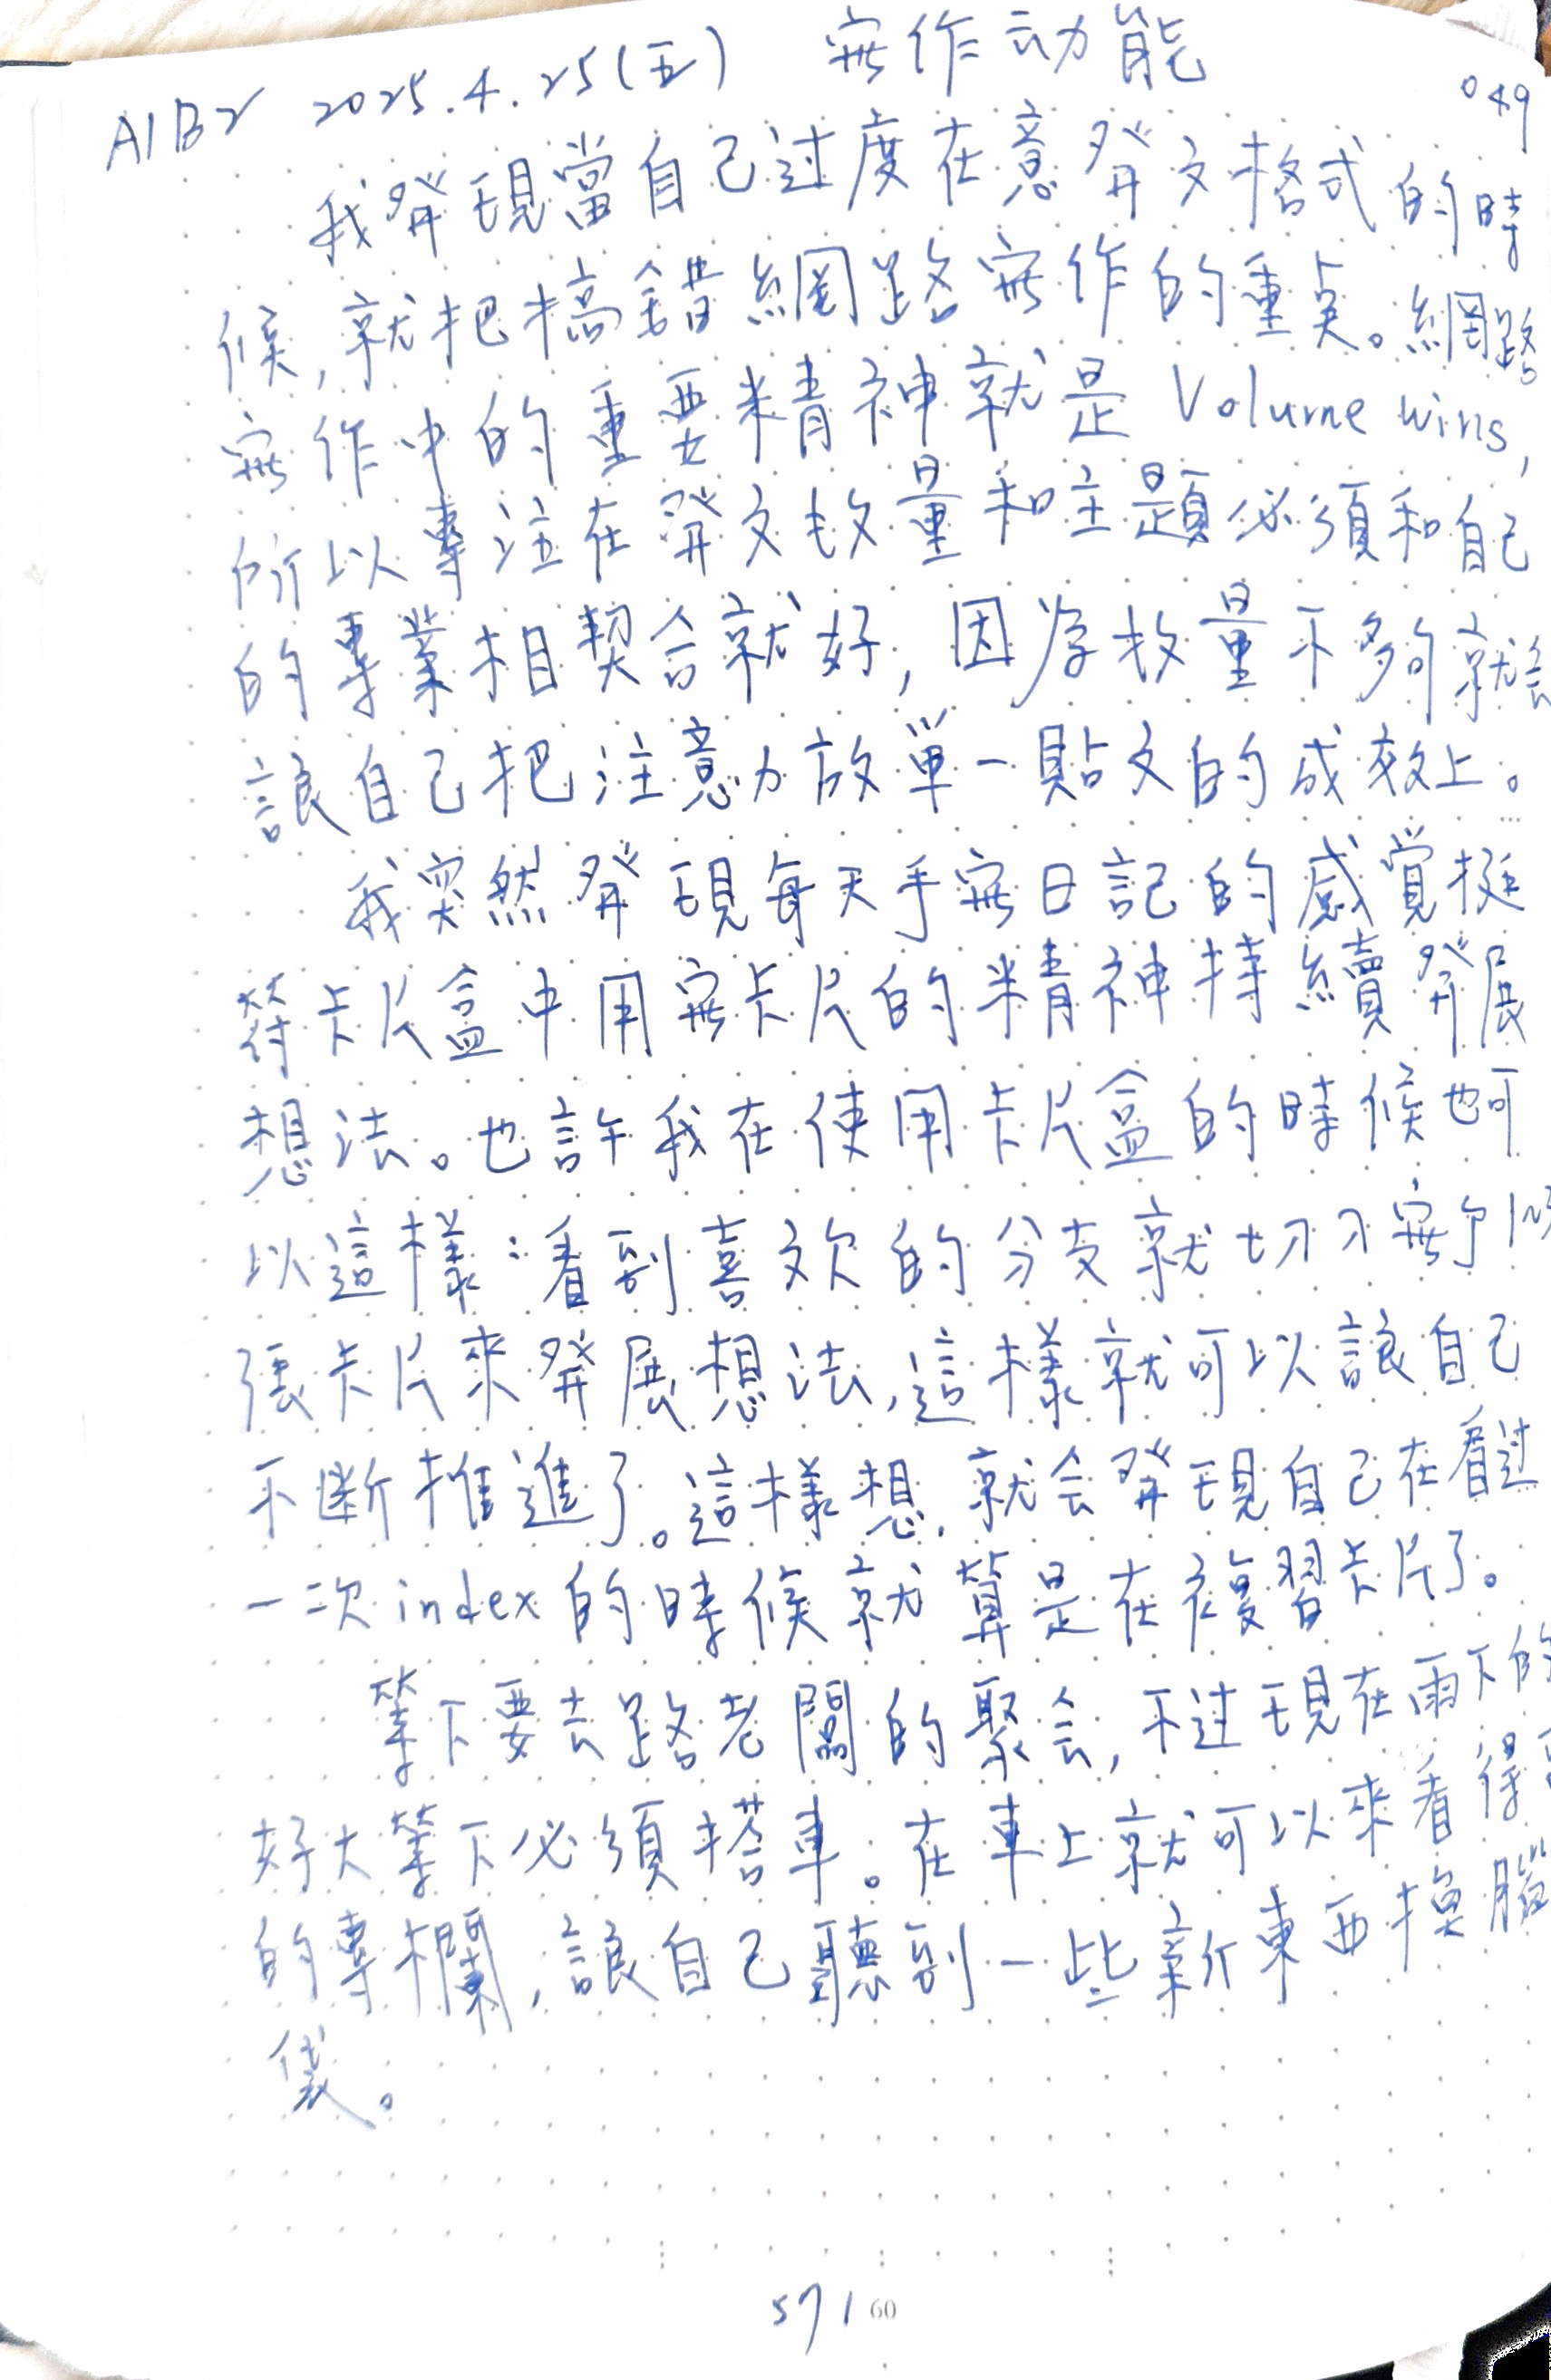 A1B2 2025.4.25(五) 寫作动能 049
我發現當自己过度在意發文格式的時
候,就把搞錯網路寫作的重点。網路
寫作中的重要精神就是 Volume wins,
所以專注在發文数量和主題必須和自己
的專業相契合就好,因為数量不多夠就会
讓自己把注意力放單一貼文的成效上。
我突然發現每天手寫日記的感覺挺
符卡片盒中用寫卡片的精神持續發展
想法。也許我在使用卡片盒的時候也可
以這樣:看到喜欢的分支就切刀寫
張卡片來發展想法,這樣就可以讓自己
不斷推進了。這樣想,就会發現自己在看过
一次index的時候就算是在複習卡片了。
等下要去路老闆的聚会,不过現在雨下的
好大等下必須搭車。在車上就可以來看得
的專欄,讓自己聽到一些新東西換腦
袋。
571 60